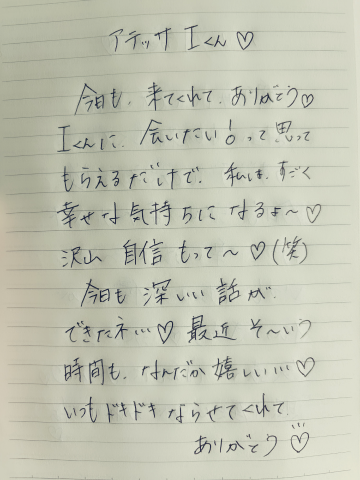 アテッサ Iくん♡
今日も、来てくれて、ありがとう♡
Iくんに、会いたい！って思って
もらえるだけで、私は、すごく
幸せな気持ちになるよ〜♡
沢山 自信 もって〜♡(笑)
今日も 深いい 話が、
できたネ…♡ 最近 そ〜いう
時間も、なんだか嬉しい…♡
いつもドキドキならせてくれて、
ありがとう♡